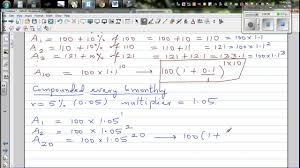 A₁ = 100 + 10% of 100 = 100 + 10 = 110 = 100 × 1.1
A₂ = 110 + 10% of 110 = 110 + 11 = 121 = 100 × 1.1²
A₃ = 121 + 10% of 121 = 121 + 12.1 = 133.1 = 100 × 1.1³
A₁₀ = 100 × 1.1¹⁰ → 100(1 + 0.1/1)^1×10
Compounded every 6 monthly
r = 5% (0.05) multiplier = 1.05
A₁ = 100 × 1.05¹
A₂ = 100 × 1.05²
A₂₀ = 100 × 1.05²⁰ → 100(1 +